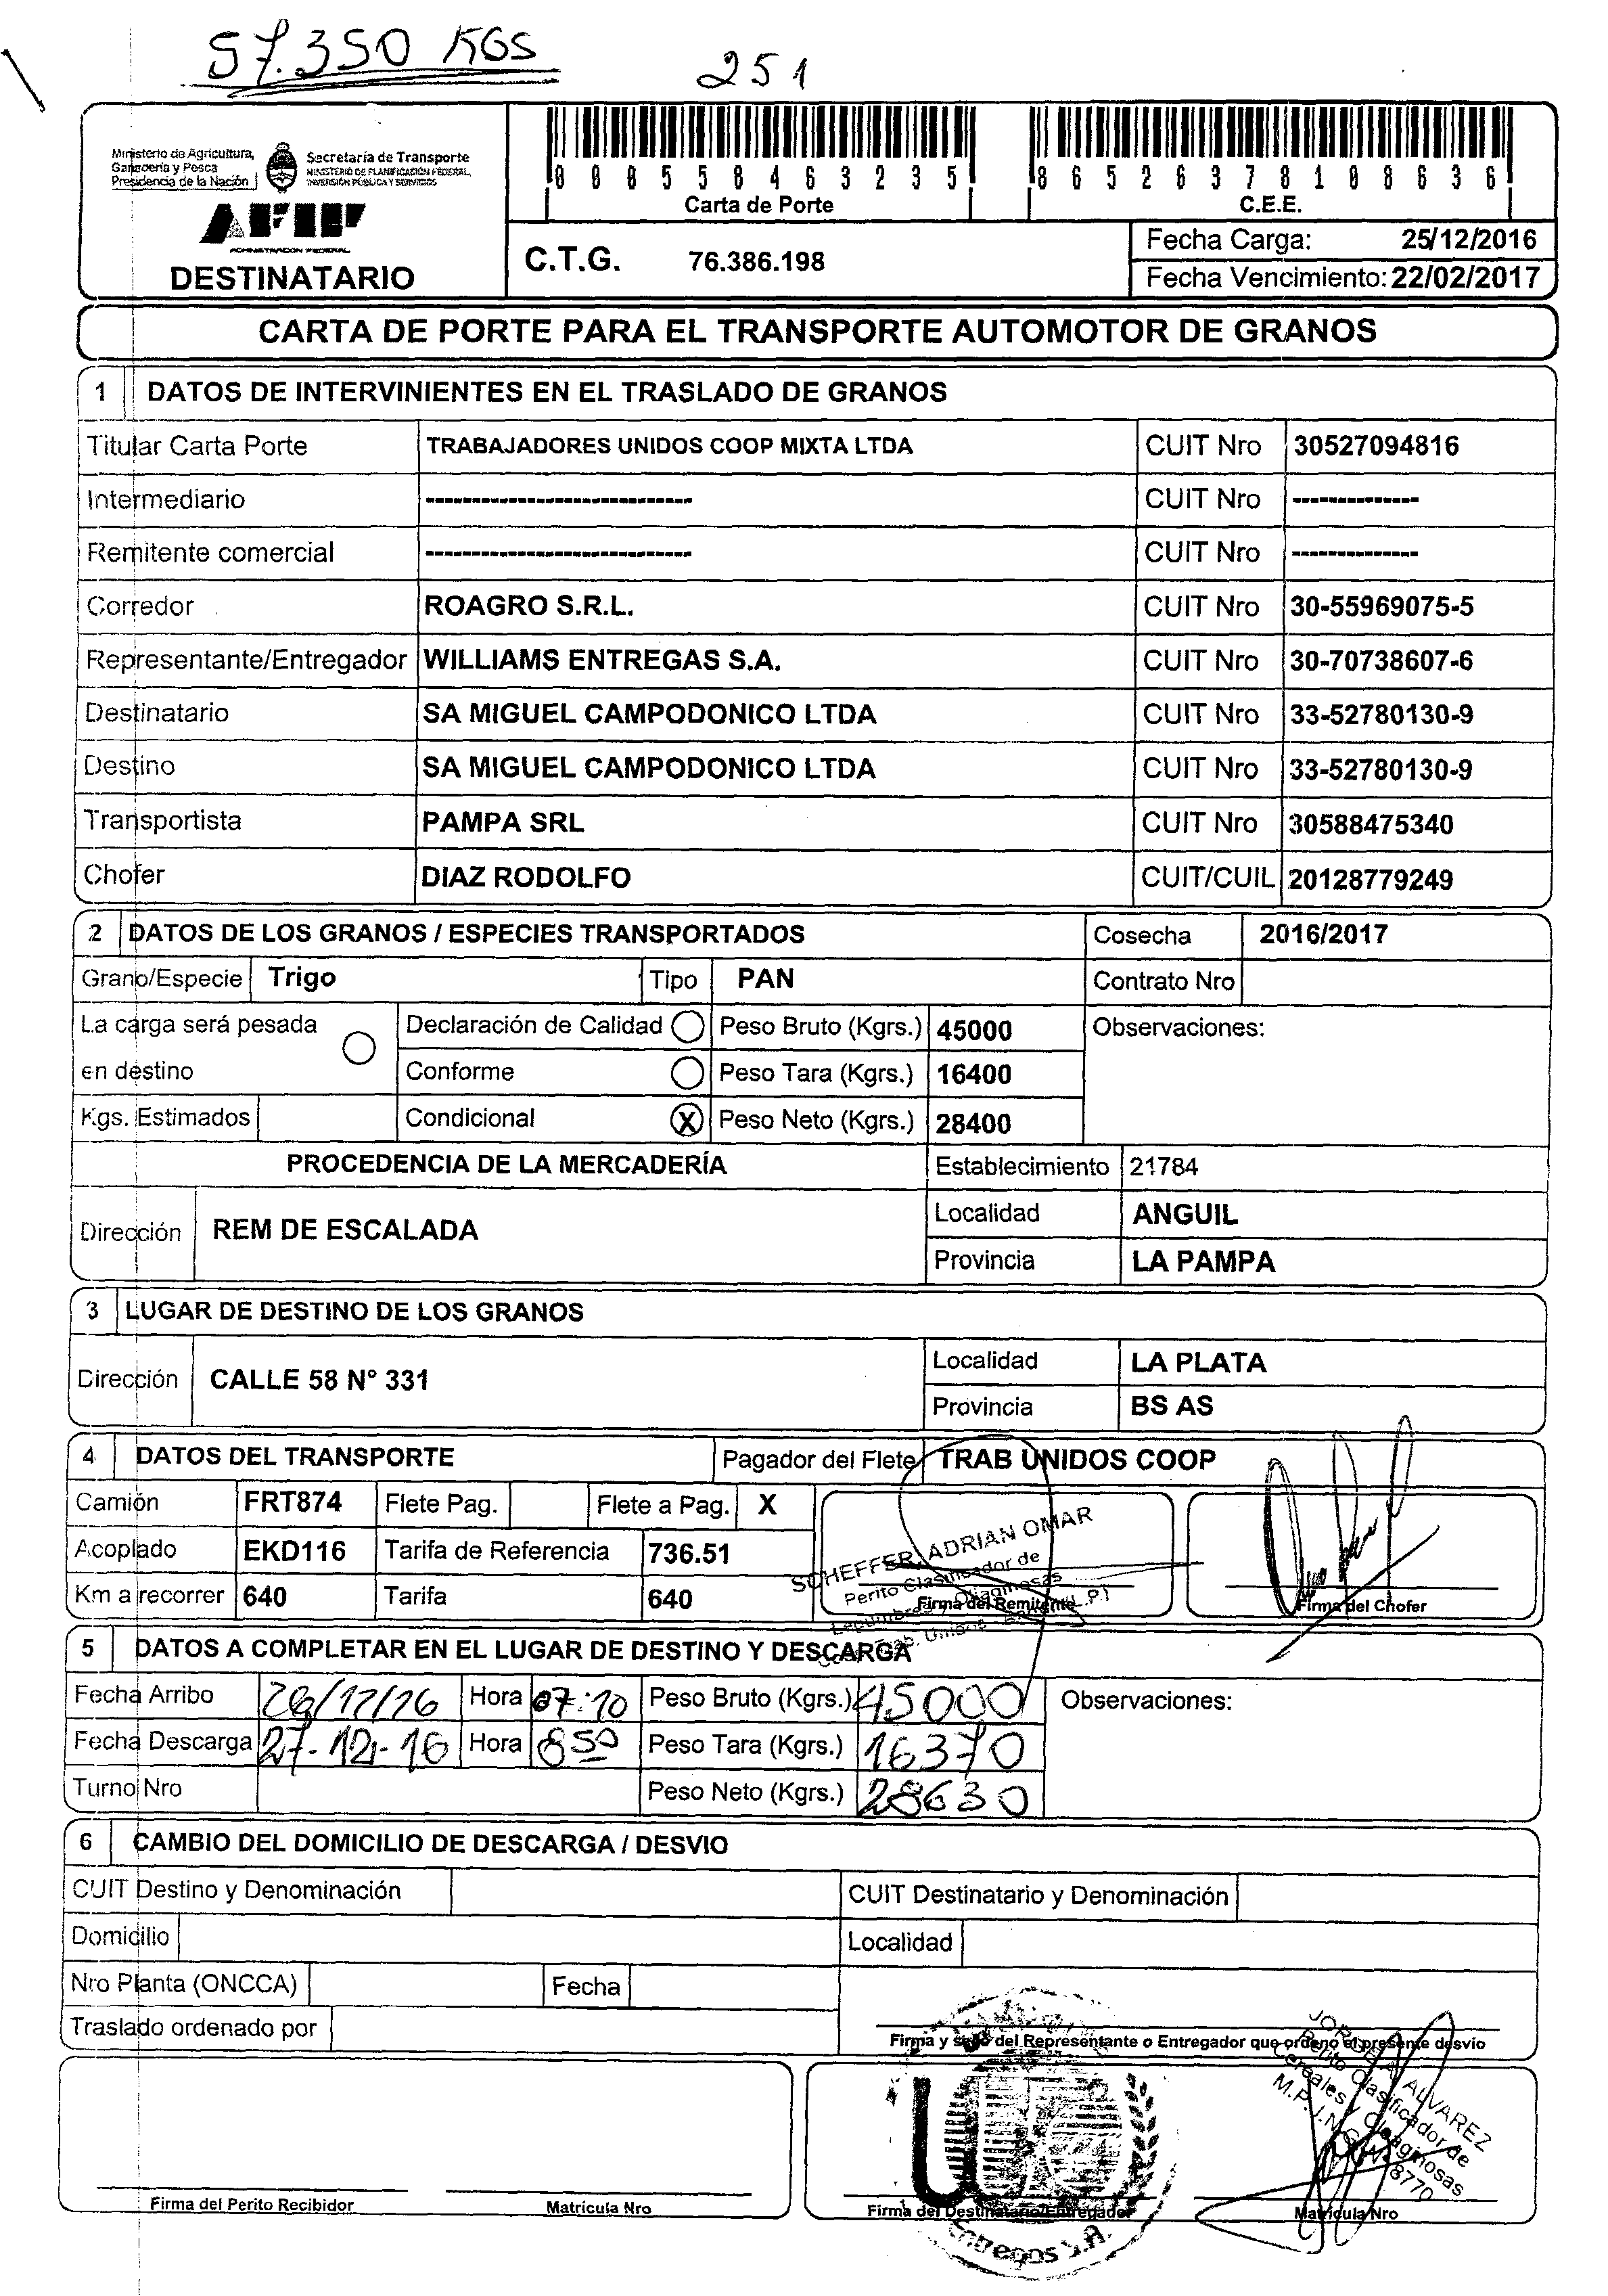 57.350 KGS
251
Ministerio de Agricultura,
Ganadería y Pesca
Presidencia de la Nación
Secretaría de Transporte
MINISTERIO DE PLANIFICACIÓN FEDERAL,
INVERSIÓN PÚBLICA Y SERVICIOS
AFIP
ADMINISTRACION FEDERAL
DESTINATARIO
000558463235
Carta de Porte
86526378108636
C.E.E.
C.T.G. 76.386.198
Fecha Carga: 25/12/2016
Fecha Vencimiento: 22/02/2017
CARTA DE PORTE PARA EL TRANSPORTE AUTOMOTOR DE GRANOS
1 DATOS DE INTERVINIENTES EN EL TRASLADO DE GRANOS
Titular Carta Porte TRABAJADORES UNIDOS COOP MIXTA LTDA CUIT Nro 30527094816
Intermediario ---------------------------- CUIT Nro --------------
Remitente comercial ---------------------------- CUIT Nro --------------
Corredor ROAGRO S.R.L. CUIT Nro 30-55969075-5
Representante/Entregador WILLIAMS ENTREGAS S.A. CUIT Nro 30-70738607-6
Destinatario SA MIGUEL CAMPODONICO LTDA CUIT Nro 33-52780130-9
Destino SA MIGUEL CAMPODONICO LTDA CUIT Nro 33-52780130-9
Transportista PAMPA SRL CUIT Nro 30588475340
Chofer DIAZ RODOLFO CUIT/CUIL 20128779249
2 DATOS DE LOS GRANOS / ESPECIES TRANSPORTADOS Cosecha 2016/2017
Grano/Especie Trigo Tipo PAN Contrato Nro
La carga será pesada en destino Declaración de Calidad Peso Bruto (Kgrs.) 45000 Observaciones:
Conforme Peso Tara (Kgrs.) 16400
Kgs. Estimados Condicional X Peso Neto (Kgrs.) 28400
PROCEDENCIA DE LA MERCADERÍA Establecimiento 21784
Dirección REM DE ESCALADA Localidad ANGUIL
Provincia LA PAMPA
3 LUGAR DE DESTINO DE LOS GRANOS
Dirección CALLE 58 N° 331 Localidad LA PLATA
Provincia BS AS
4 DATOS DEL TRANSPORTE Pagador del Flete TRAB UNIDOS COOP
Camión FRT874 Flete Pag. Flete a Pag. X
Acoplado EKD116 Tarifa de Referencia 736.51
Km a recorrer 640 Tarifa 640
SCHEFFER, ADRIAN OMAR
Perito Clasificador de
Legumbres y Oleaginosas
Firma del Remitente
Firma del Chofer
5 DATOS A COMPLETAR EN EL LUGAR DE DESTINO Y DESCARGA
Fecha Arribo 26/12/16 Hora 07:10 Peso Bruto (Kgrs.) 45000 Observaciones:
Fecha Descarga 27-12-16 Hora 850 Peso Tara (Kgrs.) 16370
Turno Nro Peso Neto (Kgrs.) 28630
6 CAMBIO DEL DOMICILIO DE DESCARGA / DESVIO
CUIT Destino y Denominación CUIT Destinatario y Denominación
Domicilio Localidad
Nro Planta (ONCCA) Fecha
Traslado ordenado por
Firma y sello del Representante o Entregador que ordeno el presente desvío
JORGE A. ALVAREZ
Perito Clasificador de
Cereales y Oleaginosas
8770
Firma del Perito Recibidor Matrícula Nro
Firma del Destinatario/Entregador Matrícula Nro
Entregas S.A.